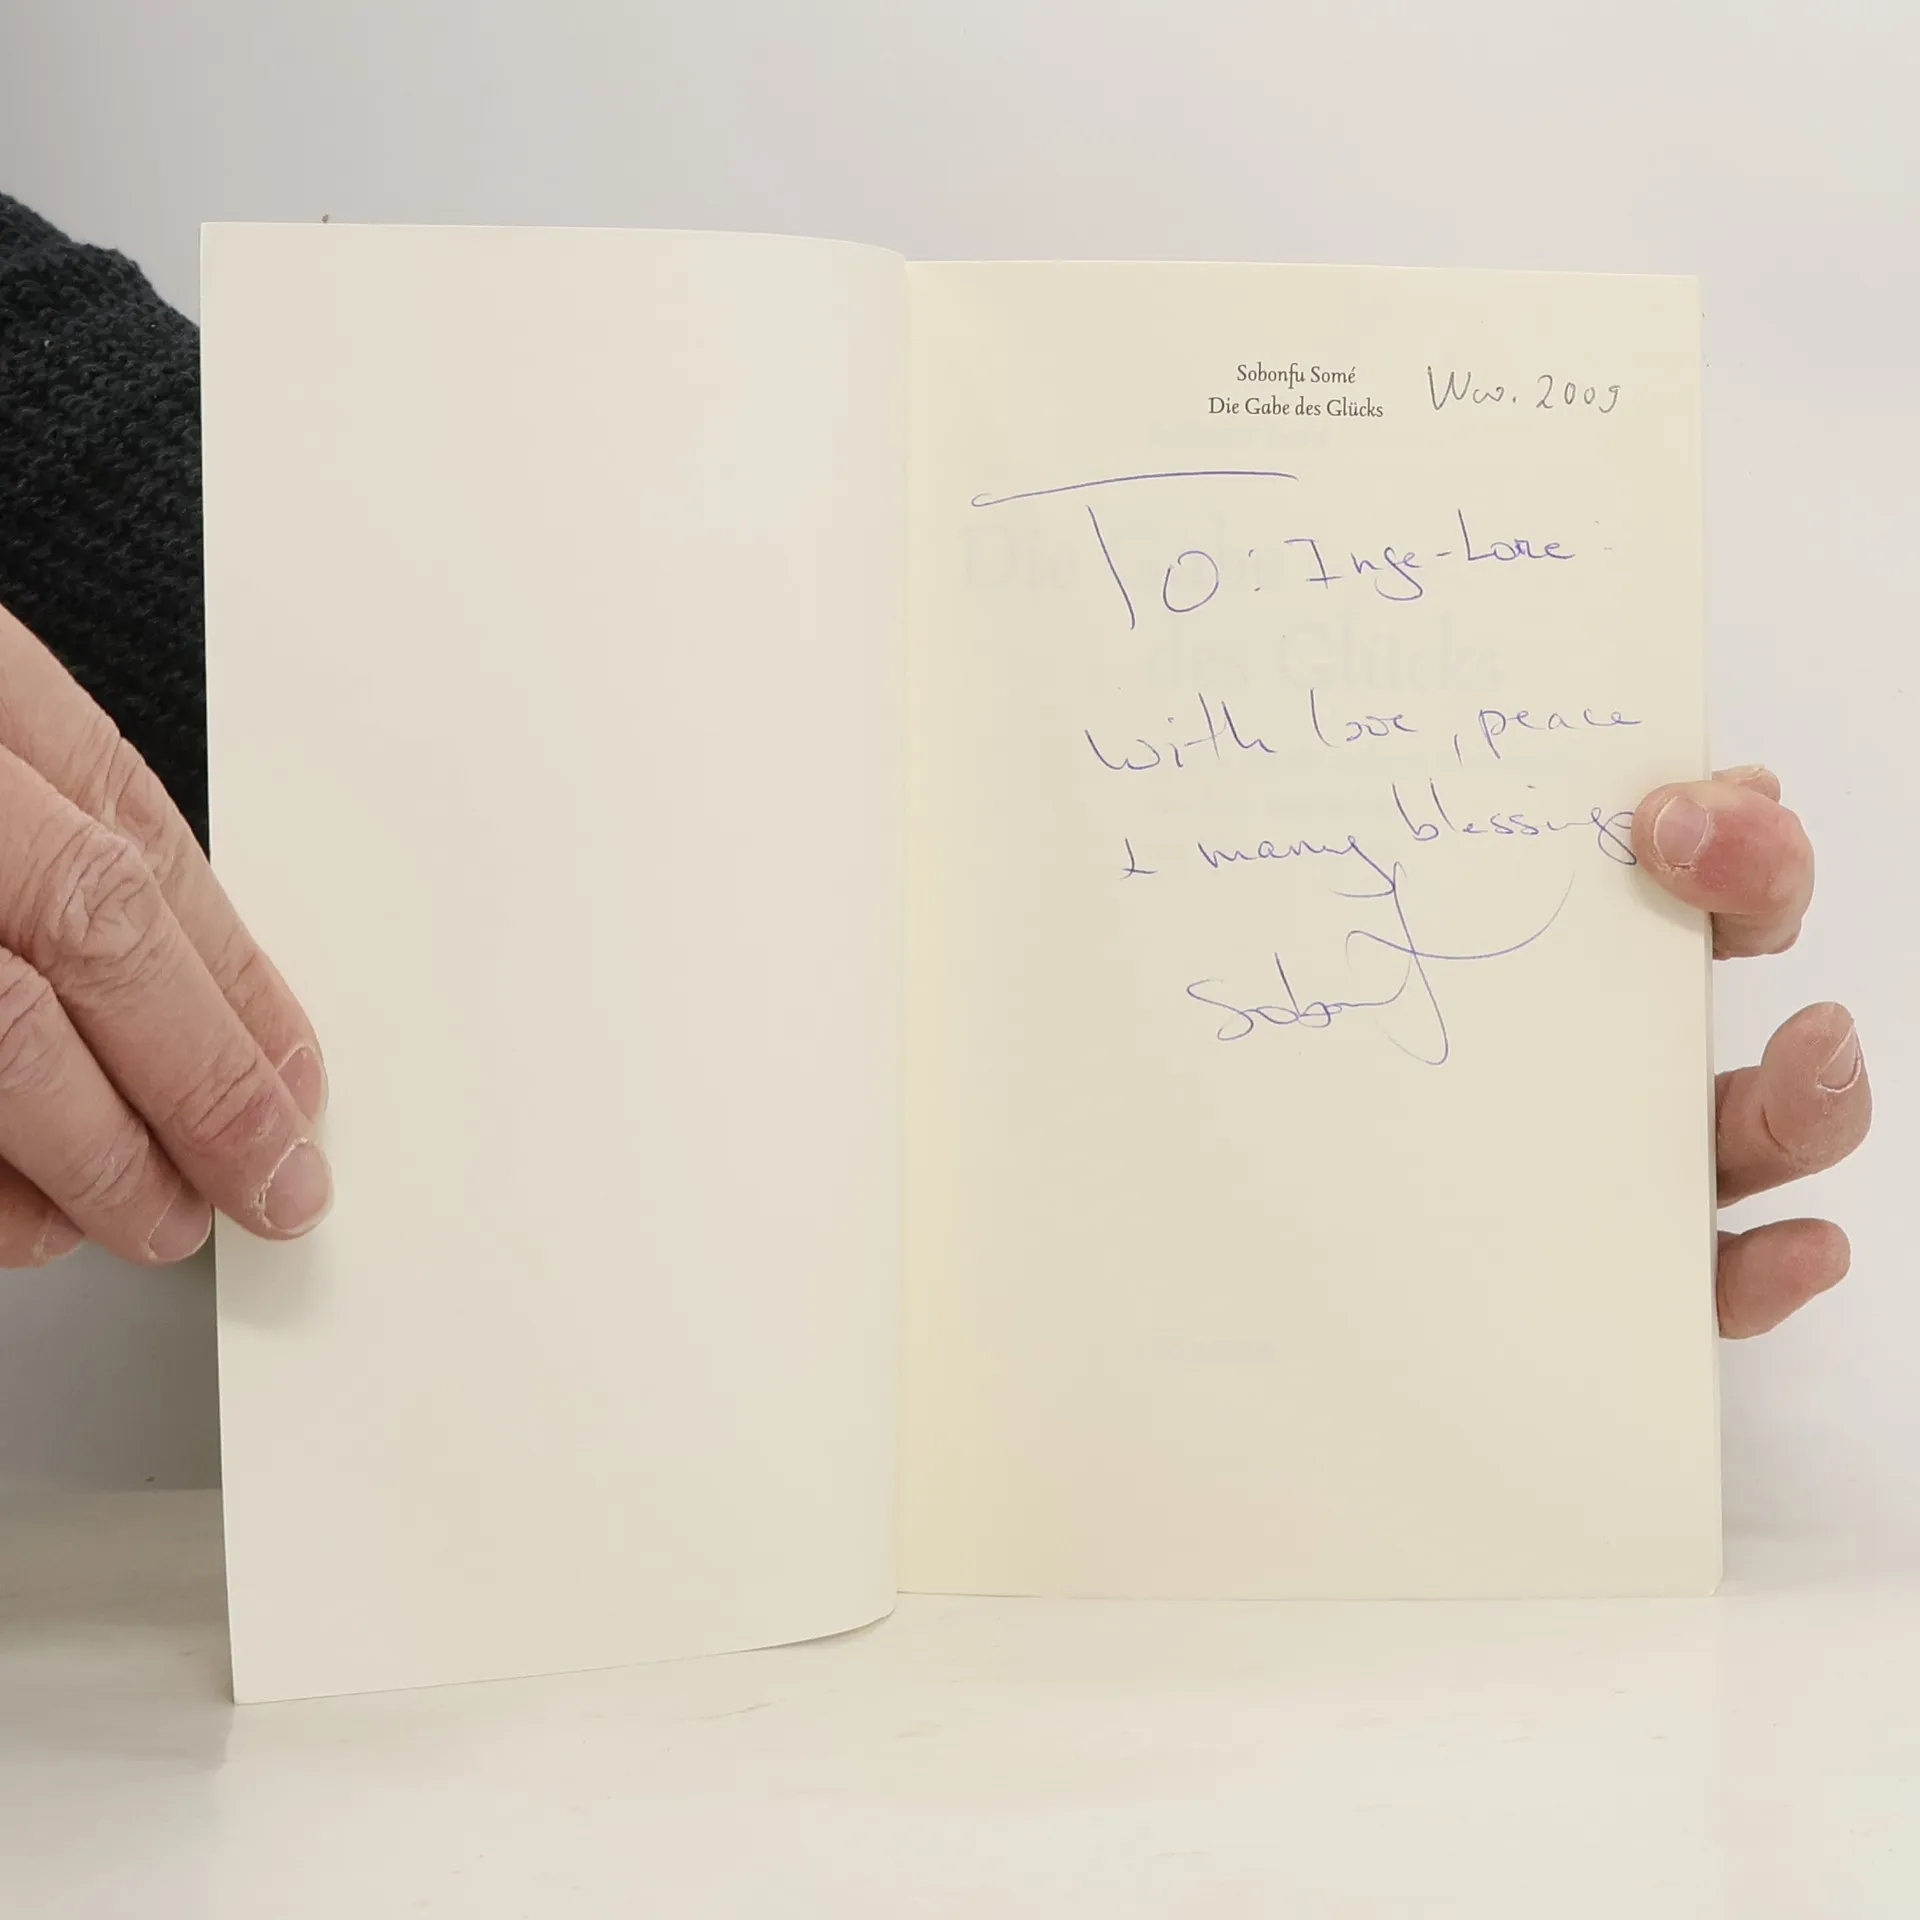 Sobonfu Somé
Die Gabe des Glücks
Ww. 2009
To: Inge-Lore
with love, peace
& many blessings
Sobonfu